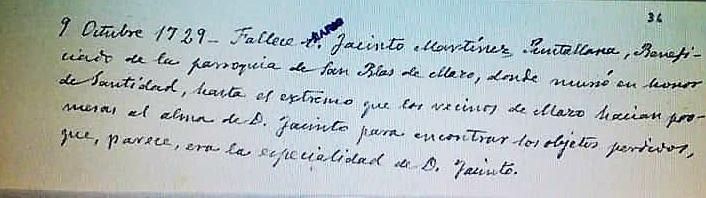 34
9 Octubre 1729 - Fallece D. Jacinto Martínez Puntallana, Benefi-
ciado de la parroquia de San Blas de Mazo, donde murió en honor
de Santidad, hasta el extremo que los vecinos de Mazo hacían pro-
mesas al alma de D. Jacinto para encontrar los objetos perdidos,
que, parece, era la especialidad de D. Jacinto.